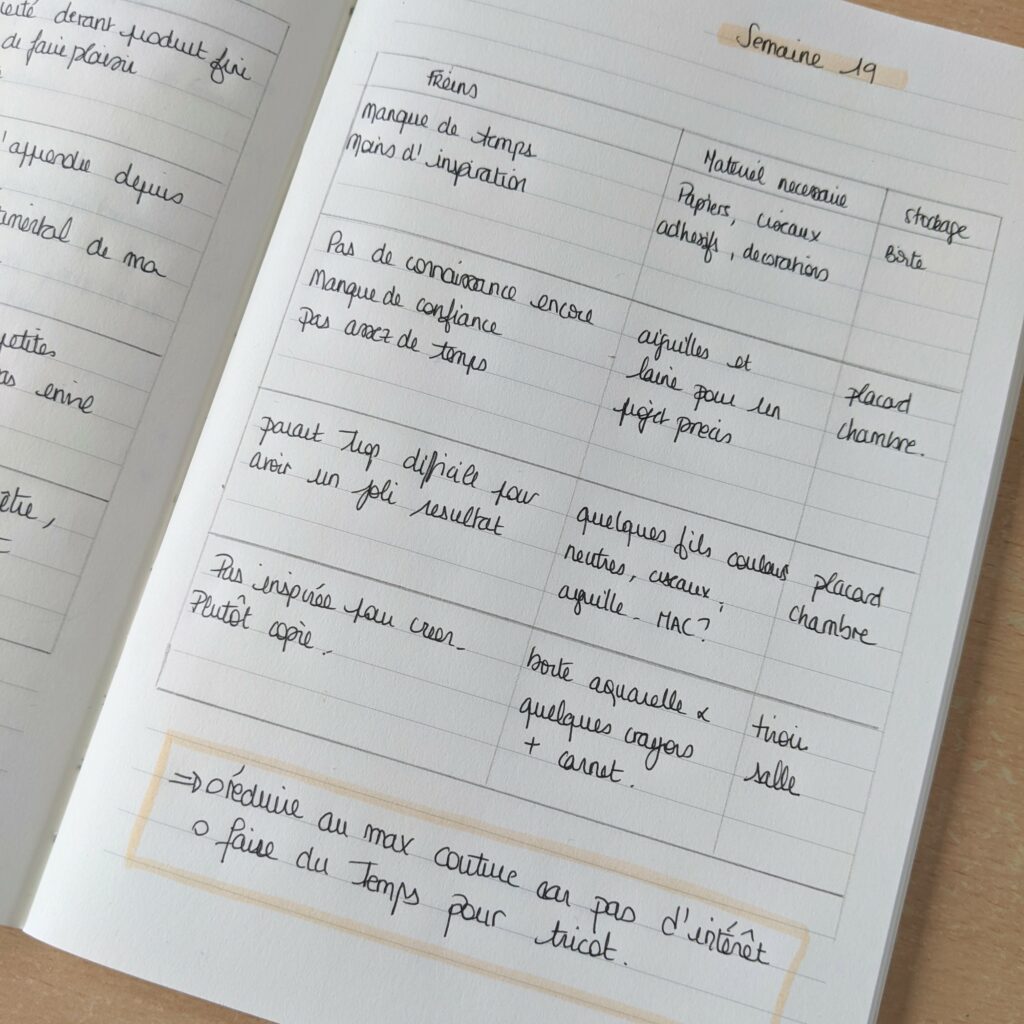 derant produit fini
de faire plaisir
d'apprendre depuis
de ma
petites
envie
être,
Semaine 19
Freins
Materiel necessaire
stockage
Manque de temps
Moins d'inspiration
Papiers, ciseaux
adhesifs, decorations
Boite
Pas de connaissance encore
Manque de confiance
pas assez de temps
aiguilles et
laine pour un
projet precis
placard
chambre.
parait trop difficile pour
avoir un joli resultat
quelques fils couleurs
neutres, ciseaux,
aiguille - MAC?
placard
chambre
Pas inspirée pour creer -
Plutôt copie.
boite aquarelle &
quelques crayons
+ carnet.
tiroir
salle
⇒ o réduire au max couture car pas d'intérêt
o faire du Temps pour tricot.